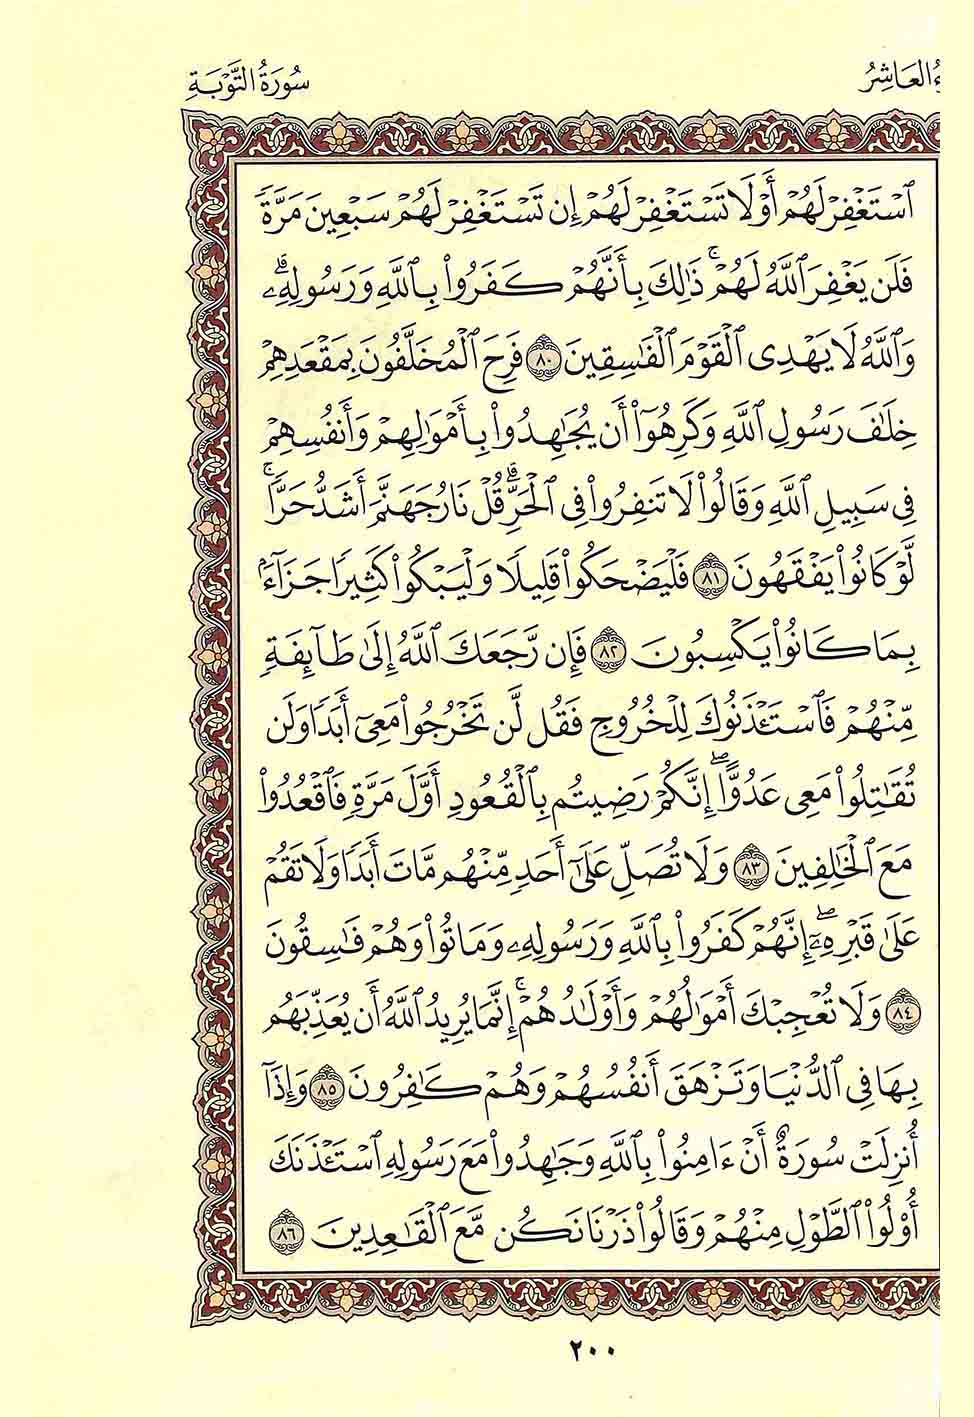 ءُ العَاشِرُ
سُورَةُ التَّوۡبَةِ
ٱسۡتَغۡفِرۡ لَهُمۡ أَوۡ لَا تَسۡتَغۡفِرۡ لَهُمۡ إِن تَسۡتَغۡفِرۡ لَهُمۡ سَبۡعِينَ مَرَّةٗ
فَلَن يَغۡفِرَ ٱللَّهُ لَهُمۡۚ ذَٰلِكَ بِأَنَّهُمۡ كَفَرُواْ بِٱللَّهِ وَرَسُولِهِۦۗ
وَٱللَّهُ لَا يَهۡدِي ٱلۡقَوۡمَ ٱلۡفَٰسِقِينَ ٨٠ فَرِحَ ٱلۡمُخَلَّفُونَ بِمَقۡعَدِهِمۡ
خِلَٰفَ رَسُولِ ٱللَّهِ وَكَرِهُوٓاْ أَن يُجَٰهِدُواْ بِأَمۡوَٰلِهِمۡ وَأَنفُسِهِمۡ
فِي سَبِيلِ ٱللَّهِ وَقَالُواْ لَا تَنفِرُواْ فِي ٱلۡحَرِّۗ قُلۡ نَارُ جَهَنَّمَ أَشَدُّ حَرّٗاۚ
لَّوۡ كَانُواْ يَفۡقَهُونَ ٨١ فَلۡيَضۡحَكُواْ قَلِيلٗا وَلۡيَبۡكُواْ كَثِيرٗا جَزَآءَۢ
بِمَا كَانُواْ يَكۡسِبُونَ ٨٢ فَإِن رَّجَعَكَ ٱللَّهُ إِلَىٰ طَآئِفَةٖ
مِّنۡهُمۡ فَٱسۡتَـٔۡذَنُوكَ لِلۡخُرُوجِ فَقُل لَّن تَخۡرُجُواْ مَعِيَ أَبَدٗا وَلَن
تُقَٰتِلُواْ مَعِيَ عَدُوًّاۖ إِنَّكُمۡ رَضِيتُم بِٱلۡقُعُودِ أَوَّلَ مَرَّةٖ فَٱقۡعُدُواْ
مَعَ ٱلۡخَٰلِفِينَ ٨٣ وَلَا تُصَلِّ عَلَىٰٓ أَحَدٖ مِّنۡهُم مَّاتَ أَبَدٗا وَلَا تَقُمۡ
عَلَىٰ قَبۡرِهِۦٓۖ إِنَّهُمۡ كَفَرُواْ بِٱللَّهِ وَرَسُولِهِۦ وَمَاتُواْ وَهُمۡ فَٰسِقُونَ
٨٤ وَلَا تُعۡجِبۡكَ أَمۡوَٰلُهُمۡ وَأَوۡلَٰدُهُمۡۚ إِنَّمَا يُرِيدُ ٱللَّهُ أَن يُعَذِّبَهُم
بِهَا فِي ٱلدُّنۡيَا وَتَزۡهَقَ أَنفُسُهُمۡ وَهُمۡ كَٰفِرُونَ ٨٥ وَإِذَآ
أُنزِلَتۡ سُورَةٌ أَنۡ ءَامِنُواْ بِٱللَّهِ وَجَٰهِدُواْ مَعَ رَسُولِهِ ٱسۡتَـٔۡذَنَكَ
أُوْلُواْ ٱلطَّوۡلِ مِنۡهُمۡ وَقَالُواْ ذَرۡنَا نَكُن مَّعَ ٱلۡقَٰعِدِينَ ٨٦
٢٠٠